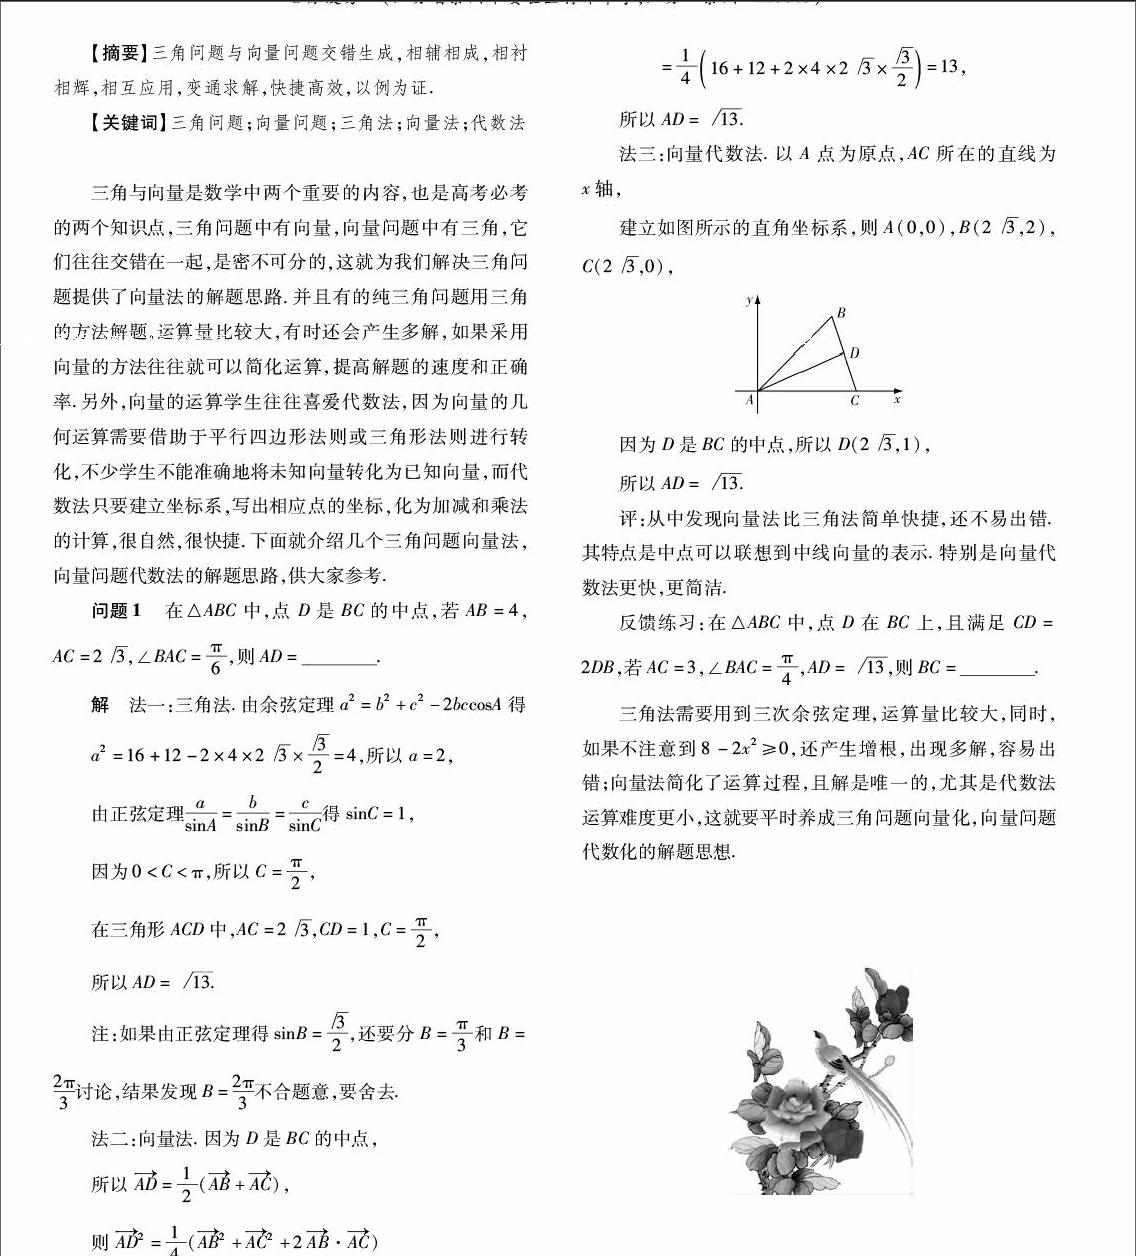 【摘要】三角问题与向量问题交错生成,相辅相成,相衬
相辉,相互应用,变通求解,快捷高效,以例为证.
【关键词】三角问题;向量问题;三角法;向量法;代数法
三角与向量是数学中两个重要的内容,也是高考必考
的两个知识点,三角问题中有向量,向量问题中有三角,它
们往往交错在一起,是密不可分的,这就为我们解决三角问
题提供了向量法的解题思路.并且有的纯三角问题用三角
的方法解题,运算量比较大,有时还会产生多解,如果采用
向量的方法往往就可以简化运算,提高解题的速度和正确
率.另外,向量的运算学生往往喜爱代数法,因为向量的几
何运算需要借助于平行四边形法则或三角形法则进行转
化,不少学生不能准确地将未知向量转化为已知向量,而代
数法只要建立坐标系,写出相应点的坐标,化为加减和乘法
的计算,很自然,很快捷.下面就介绍几个三角问题向量法,
向量问题代数法的解题思路,供大家参考.
问题1 在△ABC 中,点 D 是 BC 的中点,若 AB=4,
AC=2√3,∠BAC=π/6,则 AD=______.
解 法一:三角法.由余弦定理 a²=b²+c²-2bccosA 得
a²=16+12-2×4×2√3×√3/2=4,所以 a=2,
由正弦定理a/sinA=b/sinB=c/sinC得 sinC=1,
因为 0<C<π,所以 C=π/2,
在三角形 ACD 中,AC=2√3,CD=1,C=π/2,
所以 AD=√13.
注:如果由正弦定理得 sinB=√3/2,还要分 B=π/3和 B=
2π/3讨论,结果发现 B=2π/3不合题意,要舍去.
法二:向量法.因为 D 是 BC 的中点,
所以 AD→=1/2(AB→+AC→),
则 AD→²=1/4(AB→²+AC→²+2AB→·AC→)
=1/4(16+12+2×4×2√3×√3/2)=13,
所以 AD=√13.
法三:向量代数法.以 A 点为原点,AC 所在的直线为
x 轴,
建立如图所示的直角坐标系,则 A(0,0),B(2√3,2),
C(2√3,0),
y
B
D
A
C
x
因为 D 是 BC 的中点,所以 D(2√3,1),
所以 AD=√13.
评:从中发现向量法比三角法简单快捷,还不易出错.
其特点是中点可以联想到中线向量的表示.特别是向量代
数法更快,更简洁.
反馈练习:在△ABC 中,点 D 在 BC 上,且满足 CD=
2DB,若 AC=3,∠BAC=π/4,AD=√13,则 BC=______.
三角法需要用到三次余弦定理,运算量比较大,同时,
如果不注意到 8-2x²≥0,还产生增根,出现多解,容易出
错;向量法简化了运算过程,且解是唯一的,尤其是代数法
运算难度更小,这就要平时养成三角问题向量化,向量问题
代数化的解题思想.